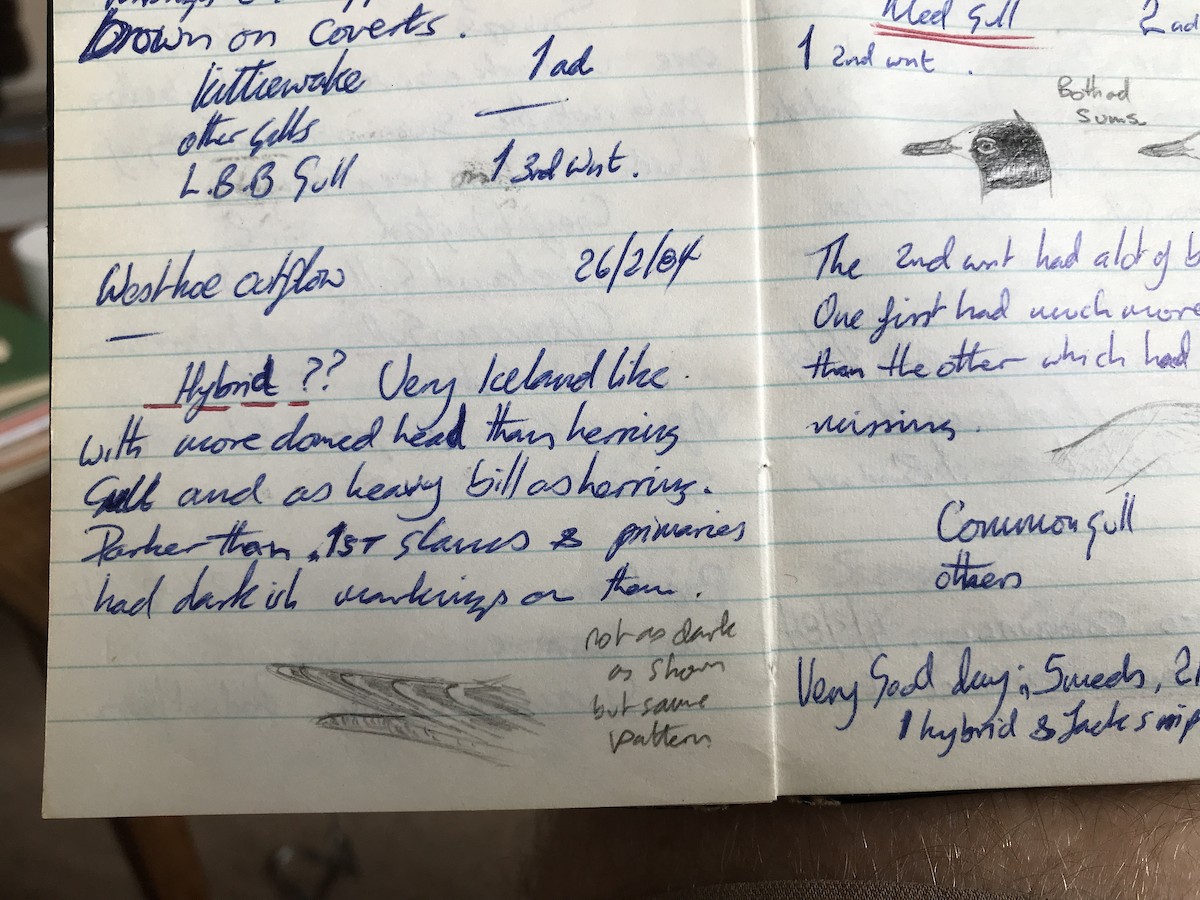 Brown on coverts.
Kittiewake 1 ad
other gulls
L.B.B Gull 1 3rd Wnt.
Westhoe outflow 26/2/84
Hybrid ?? Very Iceland like.
with more domed head than herring
Gull and as heavy bill as herring.
Darker than 1st & primaries
had darkish markings on them.
not as dark
as shown
but same
pattern
Med Gull 2 ad
1 2nd wnt.
Both ad
sums
The 2nd wnt had alot of b
One first had much more
than the other which had
missing.
Common gull
others
Very Good day; 5 meds, 2
1 hybrid & Jack snip